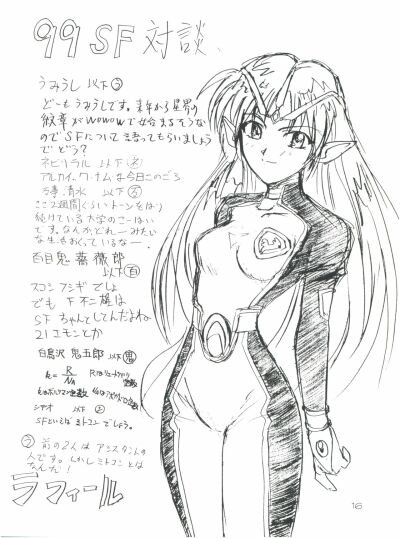 99 SF 対談、
うみうし 以下う
どーも うみうしです。来年から 星界の
紋章がwowowで始まるそうな
のでSFについて語ってもらいましょう
で どう？
ネビリラル 以下
アルカイック・ナムな今日このごろ
清水 以下
ここ2週間ぐらいトーンをはり
続けている大学のこーはい
です。なんかどれーみたい
な生
百目鬼 薔薇郎
以下百
スコシ フシギ でしょ
でも F不二雄は
SF ちゃんとしてんだよね
21エモンとか
白鳥沢 鬼五郎 以下鬼
k = R/NA
以下
SFといえば ミトコン でしょう。
う 前の2人は アシスタントの
人です。しかし ミトコン とは
なんだ！
ラフィール
16